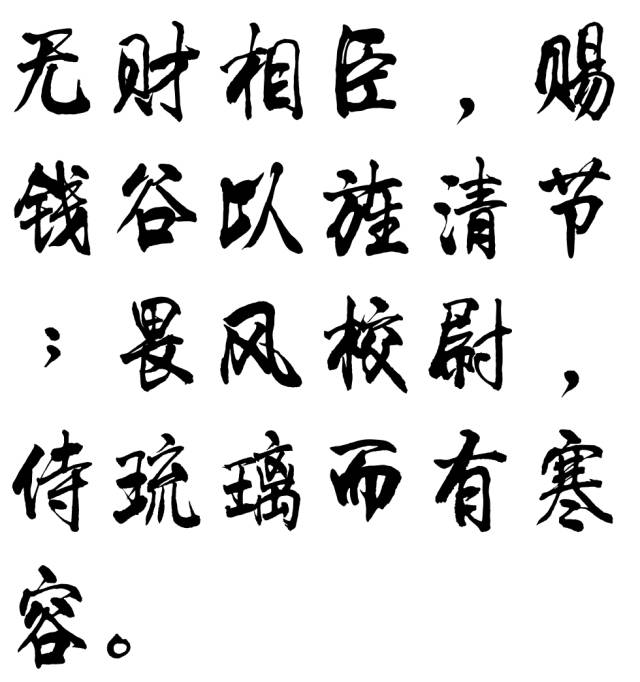 无财相臣，赐
钱谷以旌清节
；畏风校尉，
侍琉璃而有寒
容。